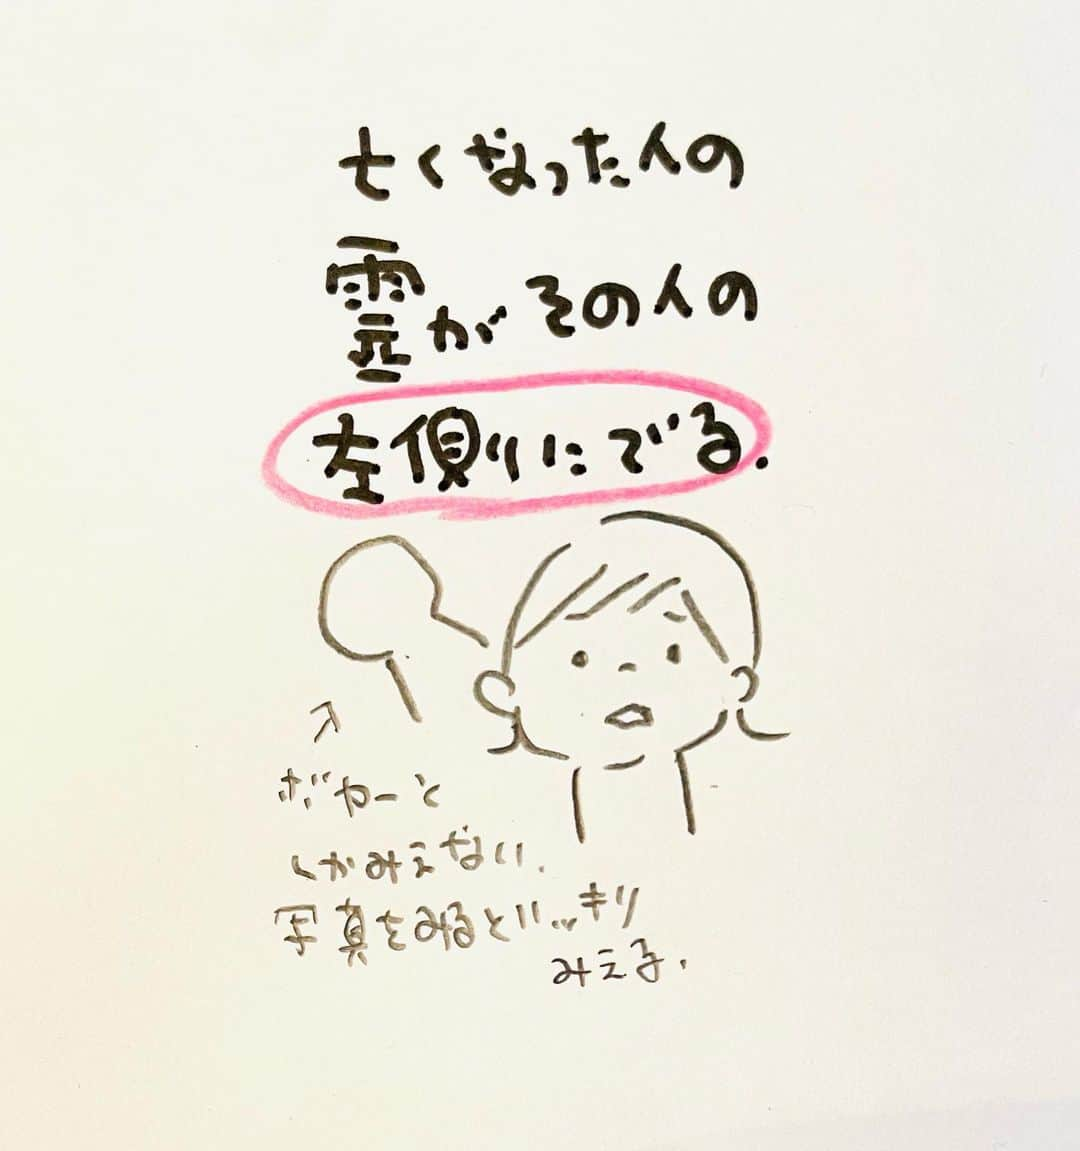 亡くなった人の
霊がその人の
左側にでる.
ボヤーと
しかみえない.
写真をみるとハッキリ
みえる.